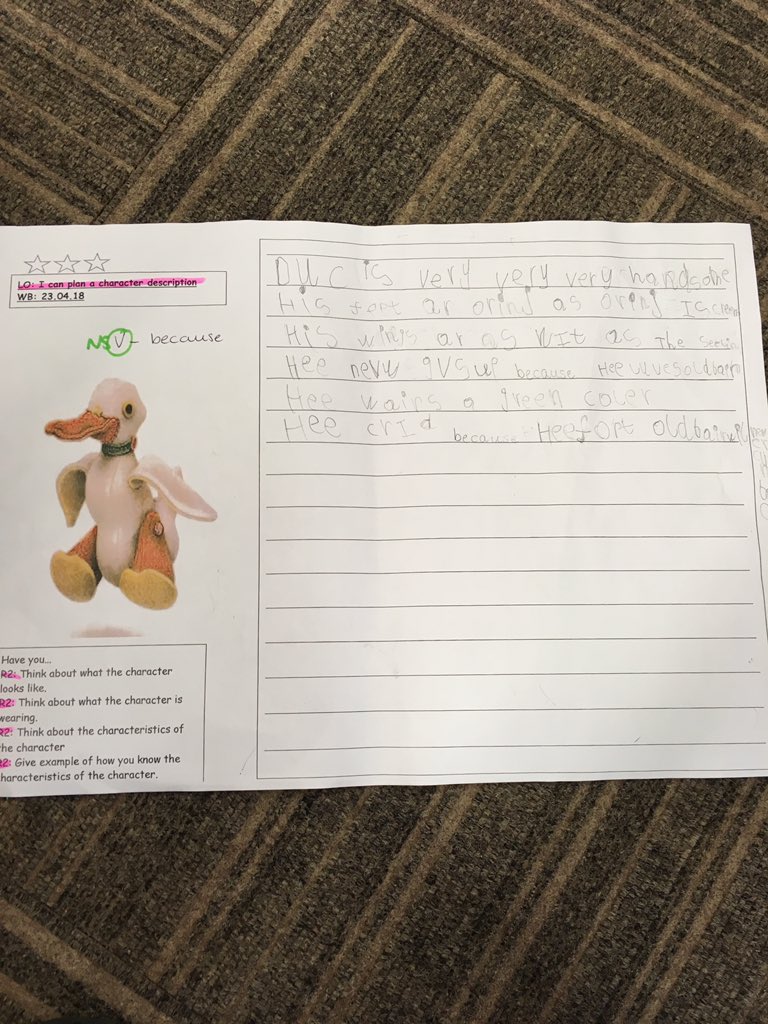 LO: I can plan a character description
WB: 23.04.18
NS V - because
DUC is very very very handsome
His feet ar orinj as orinj Iscrem
His winis ar as wit as The
Hee nevu gvsup because Hee
Hee wairs a green coler
Hee crId because Hee
Have you...
R2: Think about what the character
looks like.
R2: Think about what the character is
wearing.
R2: Think about the characteristics of
the character
R2: Give example of how you know the
haracteristics of the character.